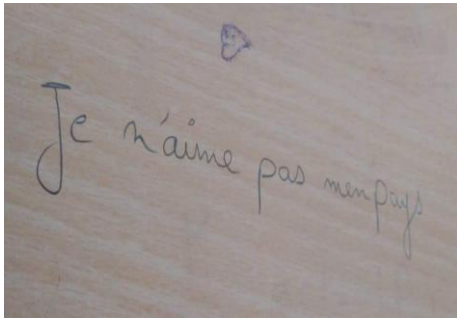 Je n'aime pas men pays